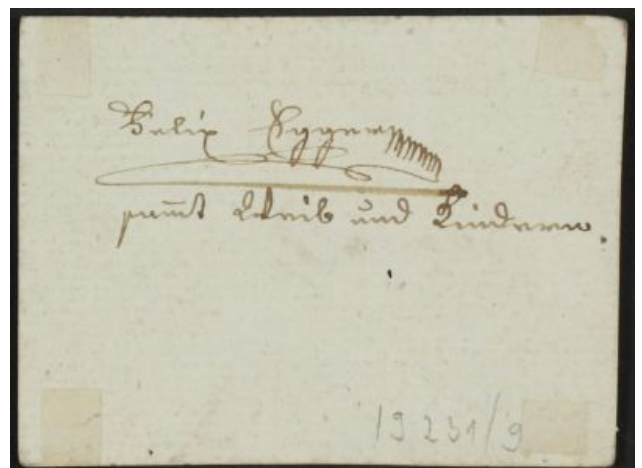 Felix Egger
samt Weib und Kindern.
19231/9